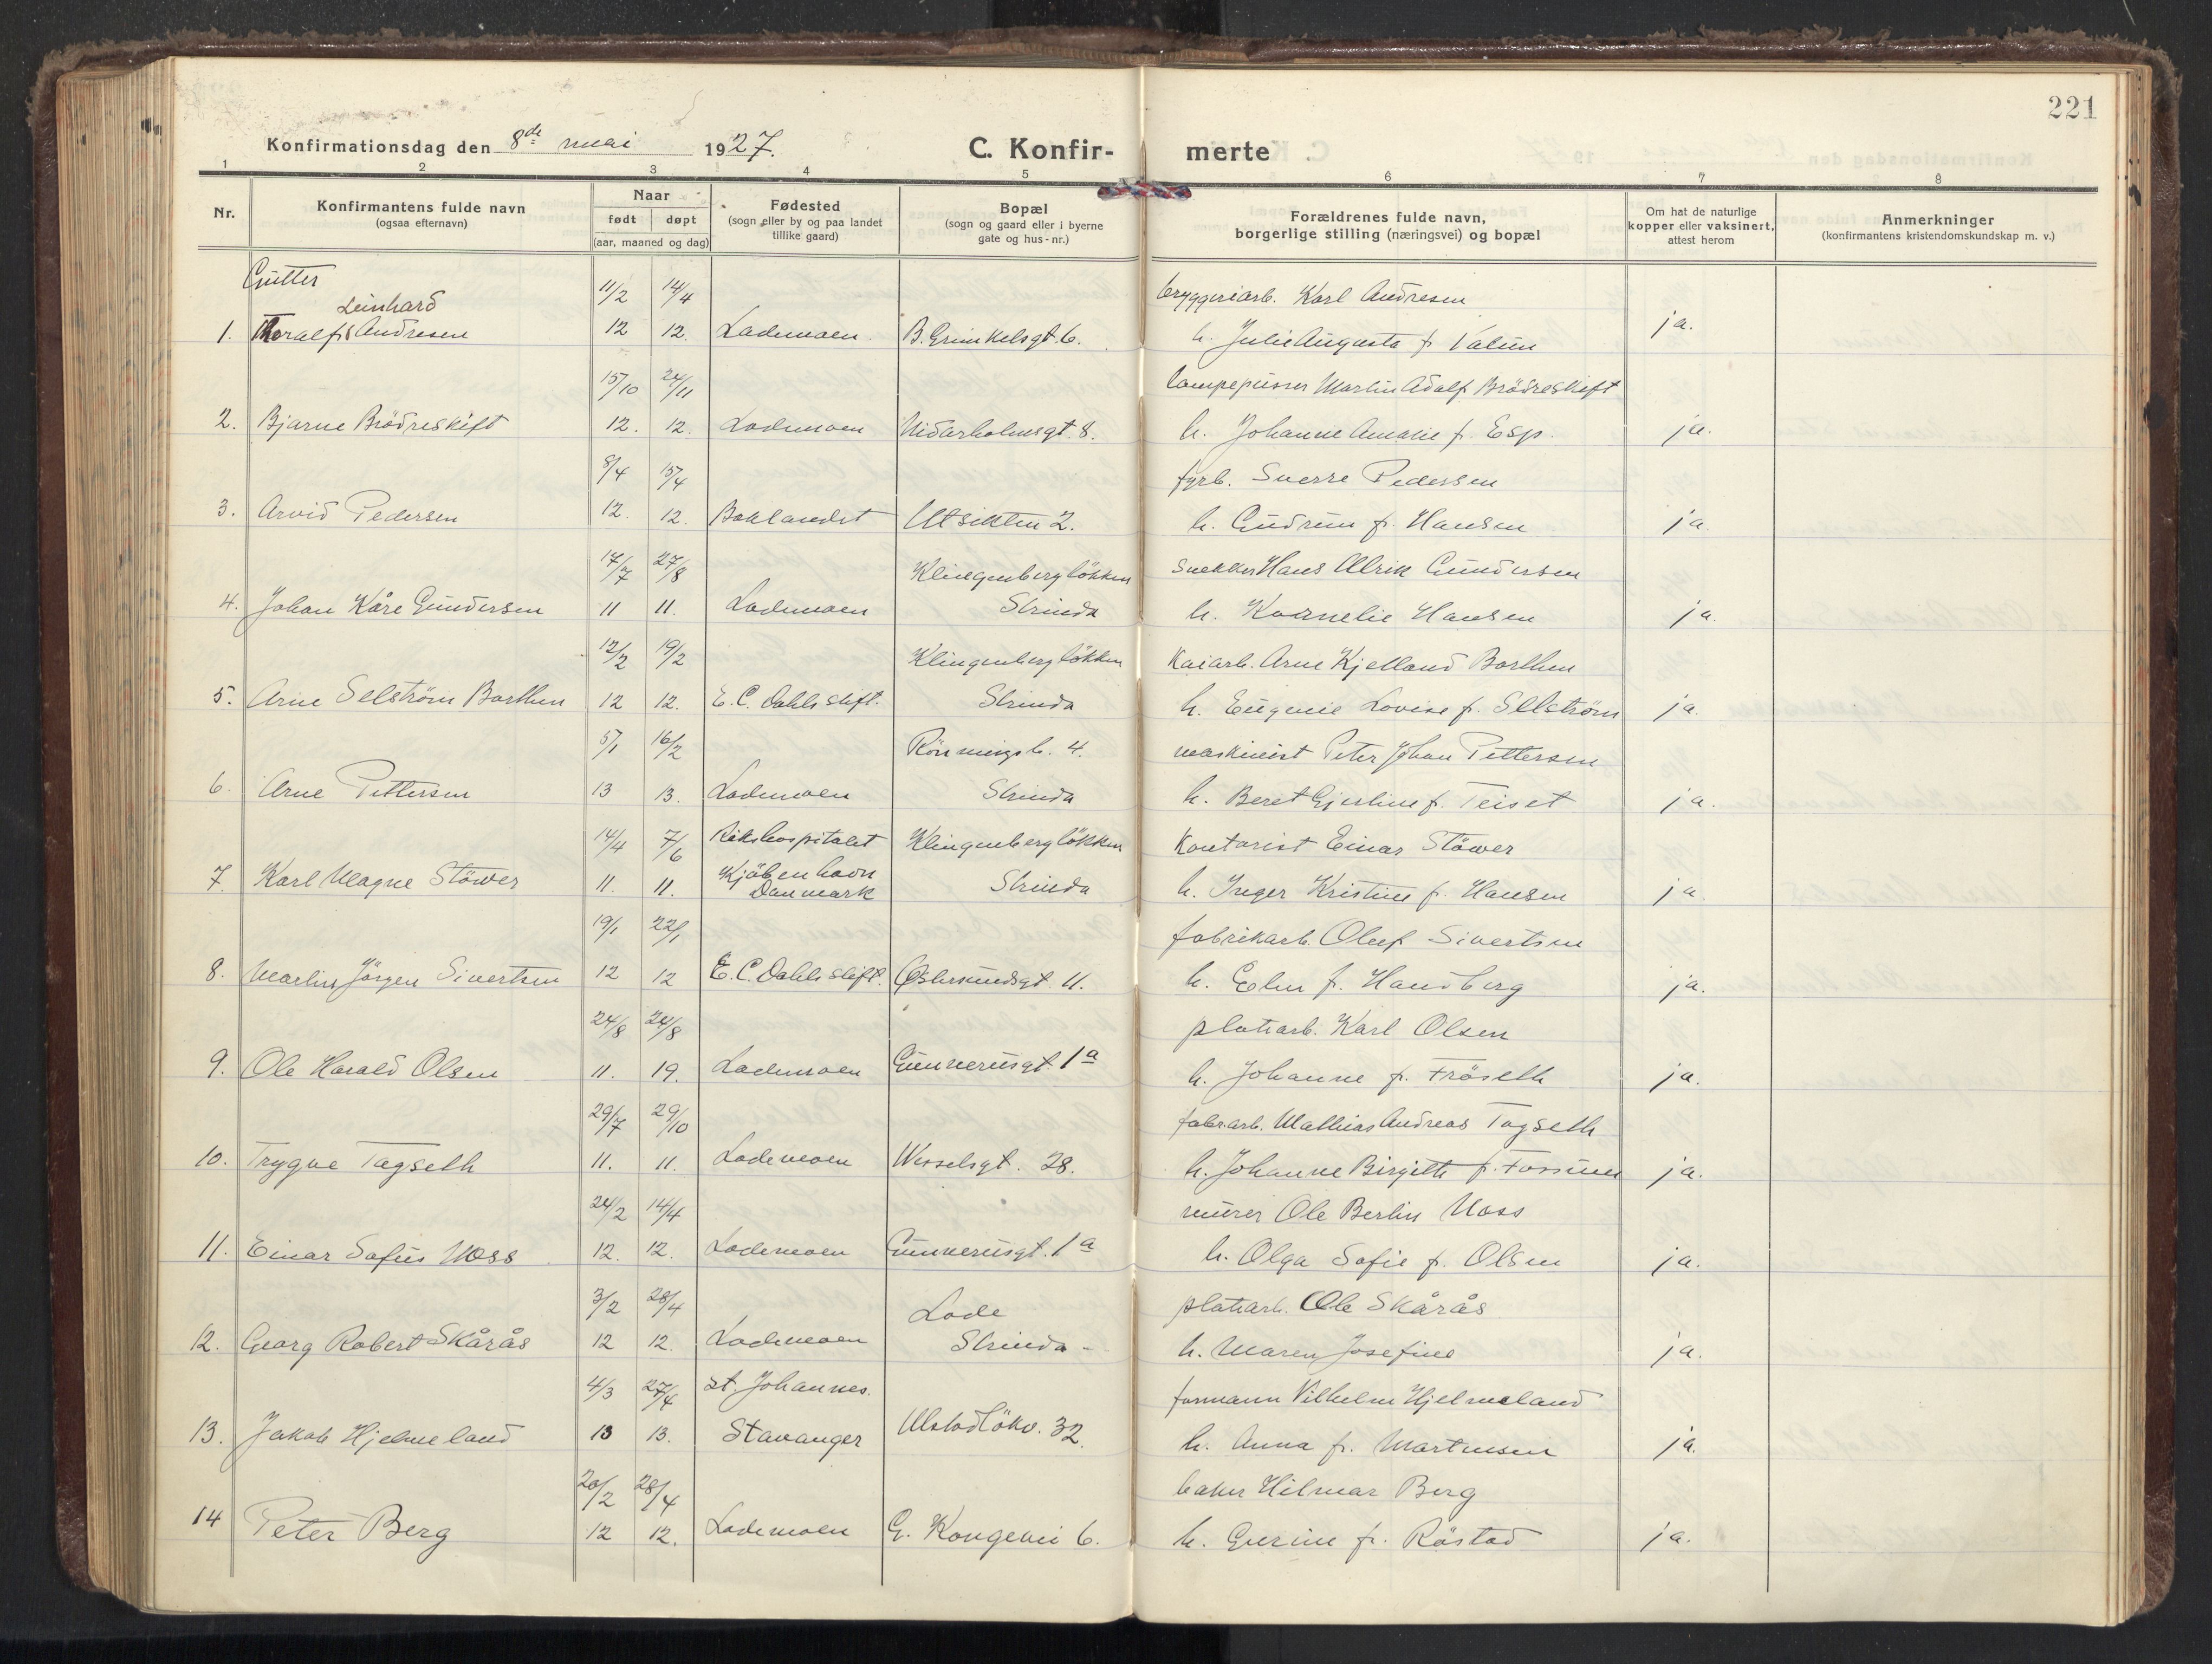 221
Konfirmationsdag den 8de mai 1927.
C. Konfirmerte
1 2 3 4 5 6 7 8
Nr.
Konfirmantens fulde navn
(ogsaa efternavn)
Naar
født døpt
(aar, maaned og dag)
Fødested
(sogn eller by og paa landet
tillike gaard)
Bopæl
(sogn og gaard eller i byerne
gate og hus-nr.)
Forældrenes fulde navn,
borgerlige stilling (næringsvei) og bopæl
Om hat de naturlige
kopper eller vaksinert,
attest herom
Anmerkninger
(konfirmantens kristendomskundskap m. v.)
Gutter
Leinhard 11/2 14/4 bryggeriarb. Karl Andresen
1. Thoralf Andresen 12 12. Lademoen. B. Grimkelsgt. 6. h. Julie Augusta f. Valun ja.
15/10 24/11 Lampepusser Martin Adolf Brödreskift
2. Bjarne Brödreskift 12. 12. Lademoen Nidarholmsgt. 8. h. Johanne Amalie f. Esp. ja.
8/4 15/4 fyrb. Sverre Pedersen
3. Arvid Pedersen 12. 12. Baklandet Utsikten 2. h. Gudrun f. Hansen ja
17/7 27/8 Klingenbergløkken Snekker Hans Ulrik Gundersen
4. Johan Kåre Gundersen 11 11. Lademoen Strinda h. Kornelie Hansen ja
12/2 19/2 Klingenbergløkken Kaiarb. Arne Kjelland Barthen
5. Arne Selström Barthen 12 12. E. C. Dahls stift. Strinda h. Eugenie Lovise f. Selström ja
5/1 16/2 Rönningsb. 4. maskinist Peter Johan Pettersen
6. Arne Pettersen 13 13. Lademoen Strinda h. Beret Gjertine f. Teiset ja.
14/4 7/6 Rikshospitalet Klingenbergløkken Kontorist Einar Stöwer
7. Karl Magne Stöwer 11. 11. Kjöbenhavn Danmark Strinda h. Inger Kristine f. Hansen ja
19/1 22/1 fabrikarb. Oluf Sivertsen
8. Martin Jörgen Sivertsen 12 12 E. C. Dahls stift. Østersundsgt. 11. h. Elen f. Handberg ja.
24/8 24/8 platearb. Karl Olsen
9. Ole Harald Olsen 11. 19. Lademoen Gunnerusgt. 1a h. Johanne f. Fröseth ja.
29/7 29/10 fabr.arb. Mathias Andreas Tagseth
10. Trygve Tagseth 11. 11. Lademoen Wesselsgt. 28. h. Johanne Birgitte f. Fossum ja.
24/2 14/4 murer Ole Berlin Moss
11. Einar Sofus Moss 12. 12. Lademoen Gunnerusgt. 1a h. Olga Sofie f. Olsen ja.
3/2 28/4 Lade platearb. Ole Skårås
12. Georg Robert Skårås 12 12. Lademoen Strinda - h. Maren Josefine ja.
4/3 27/4 St. Johannes. formann Vilhelm Hjelmeland
13. Jakob Hjelmeland 13 13. Stavanger Ulstadløkv. 32. h. Anna f. Martinsen ja.
20/2 28/4 baker Hilmar Berg
14 Peter Berg 12 12. Lademoen G. Kongevei 6. h. Gurine f. Röstad ja.